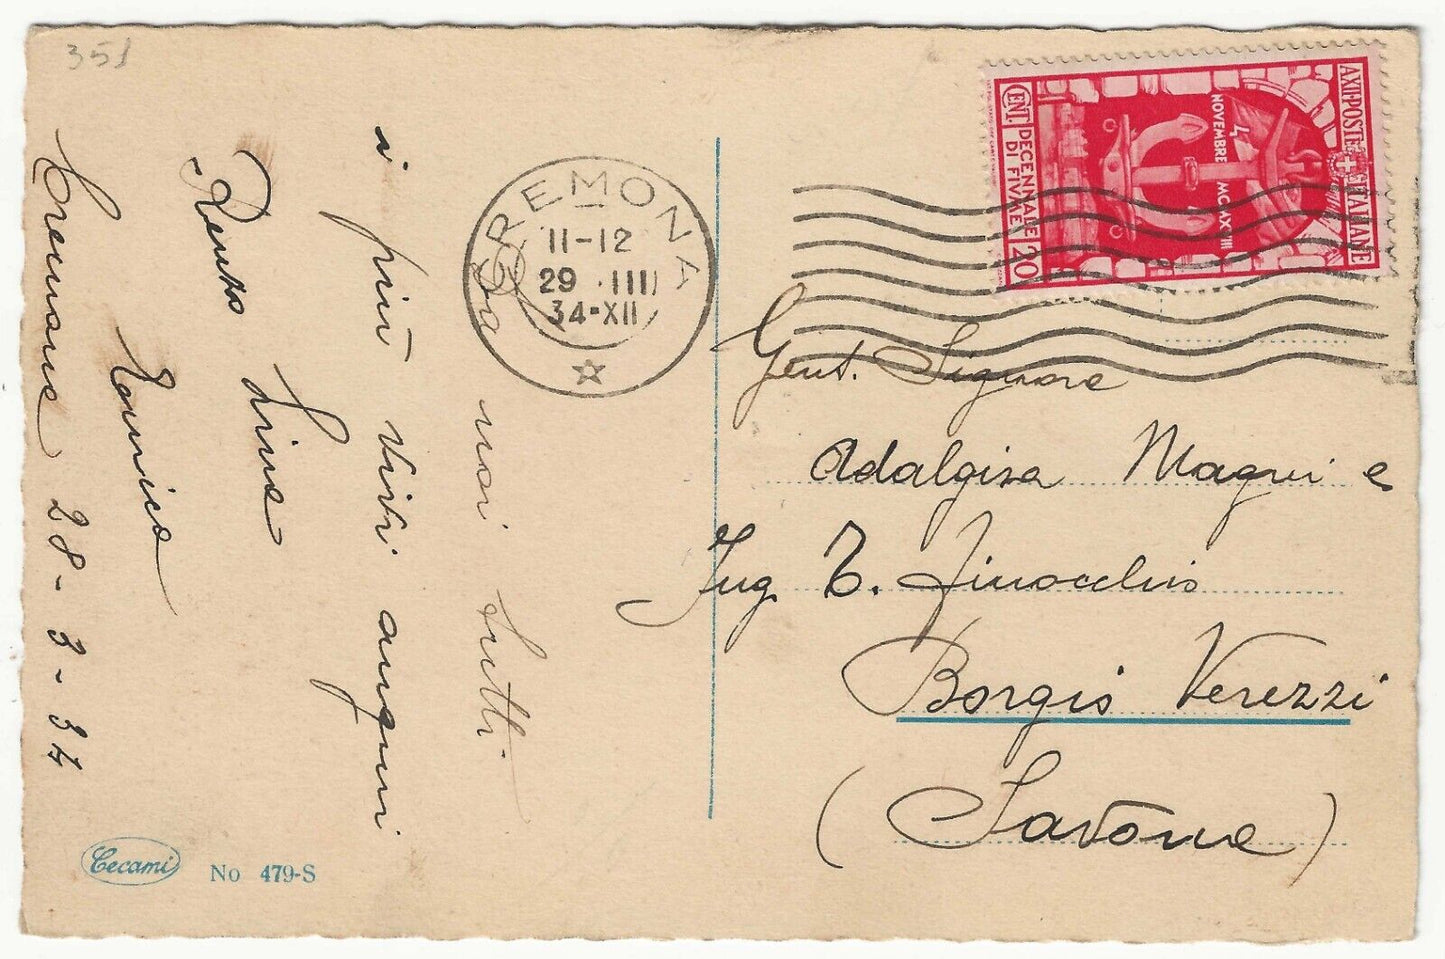 351
Da noi tutti
i più vivi auguri
Renzo Lina
Enrica
Cremona 28-3-34
CREMONA
11-12
29 .III
34-XII
AXII·POSTE ITALIANE
4
NOVEMBRE MCMXVIII
DECENNALE
DI FIUME
CENT. 20
Gent. Signora
Adalgisa Magni e
Ing. T. Finocchio
Borgio Verezzi
(Savona)
Cecami No 479-S